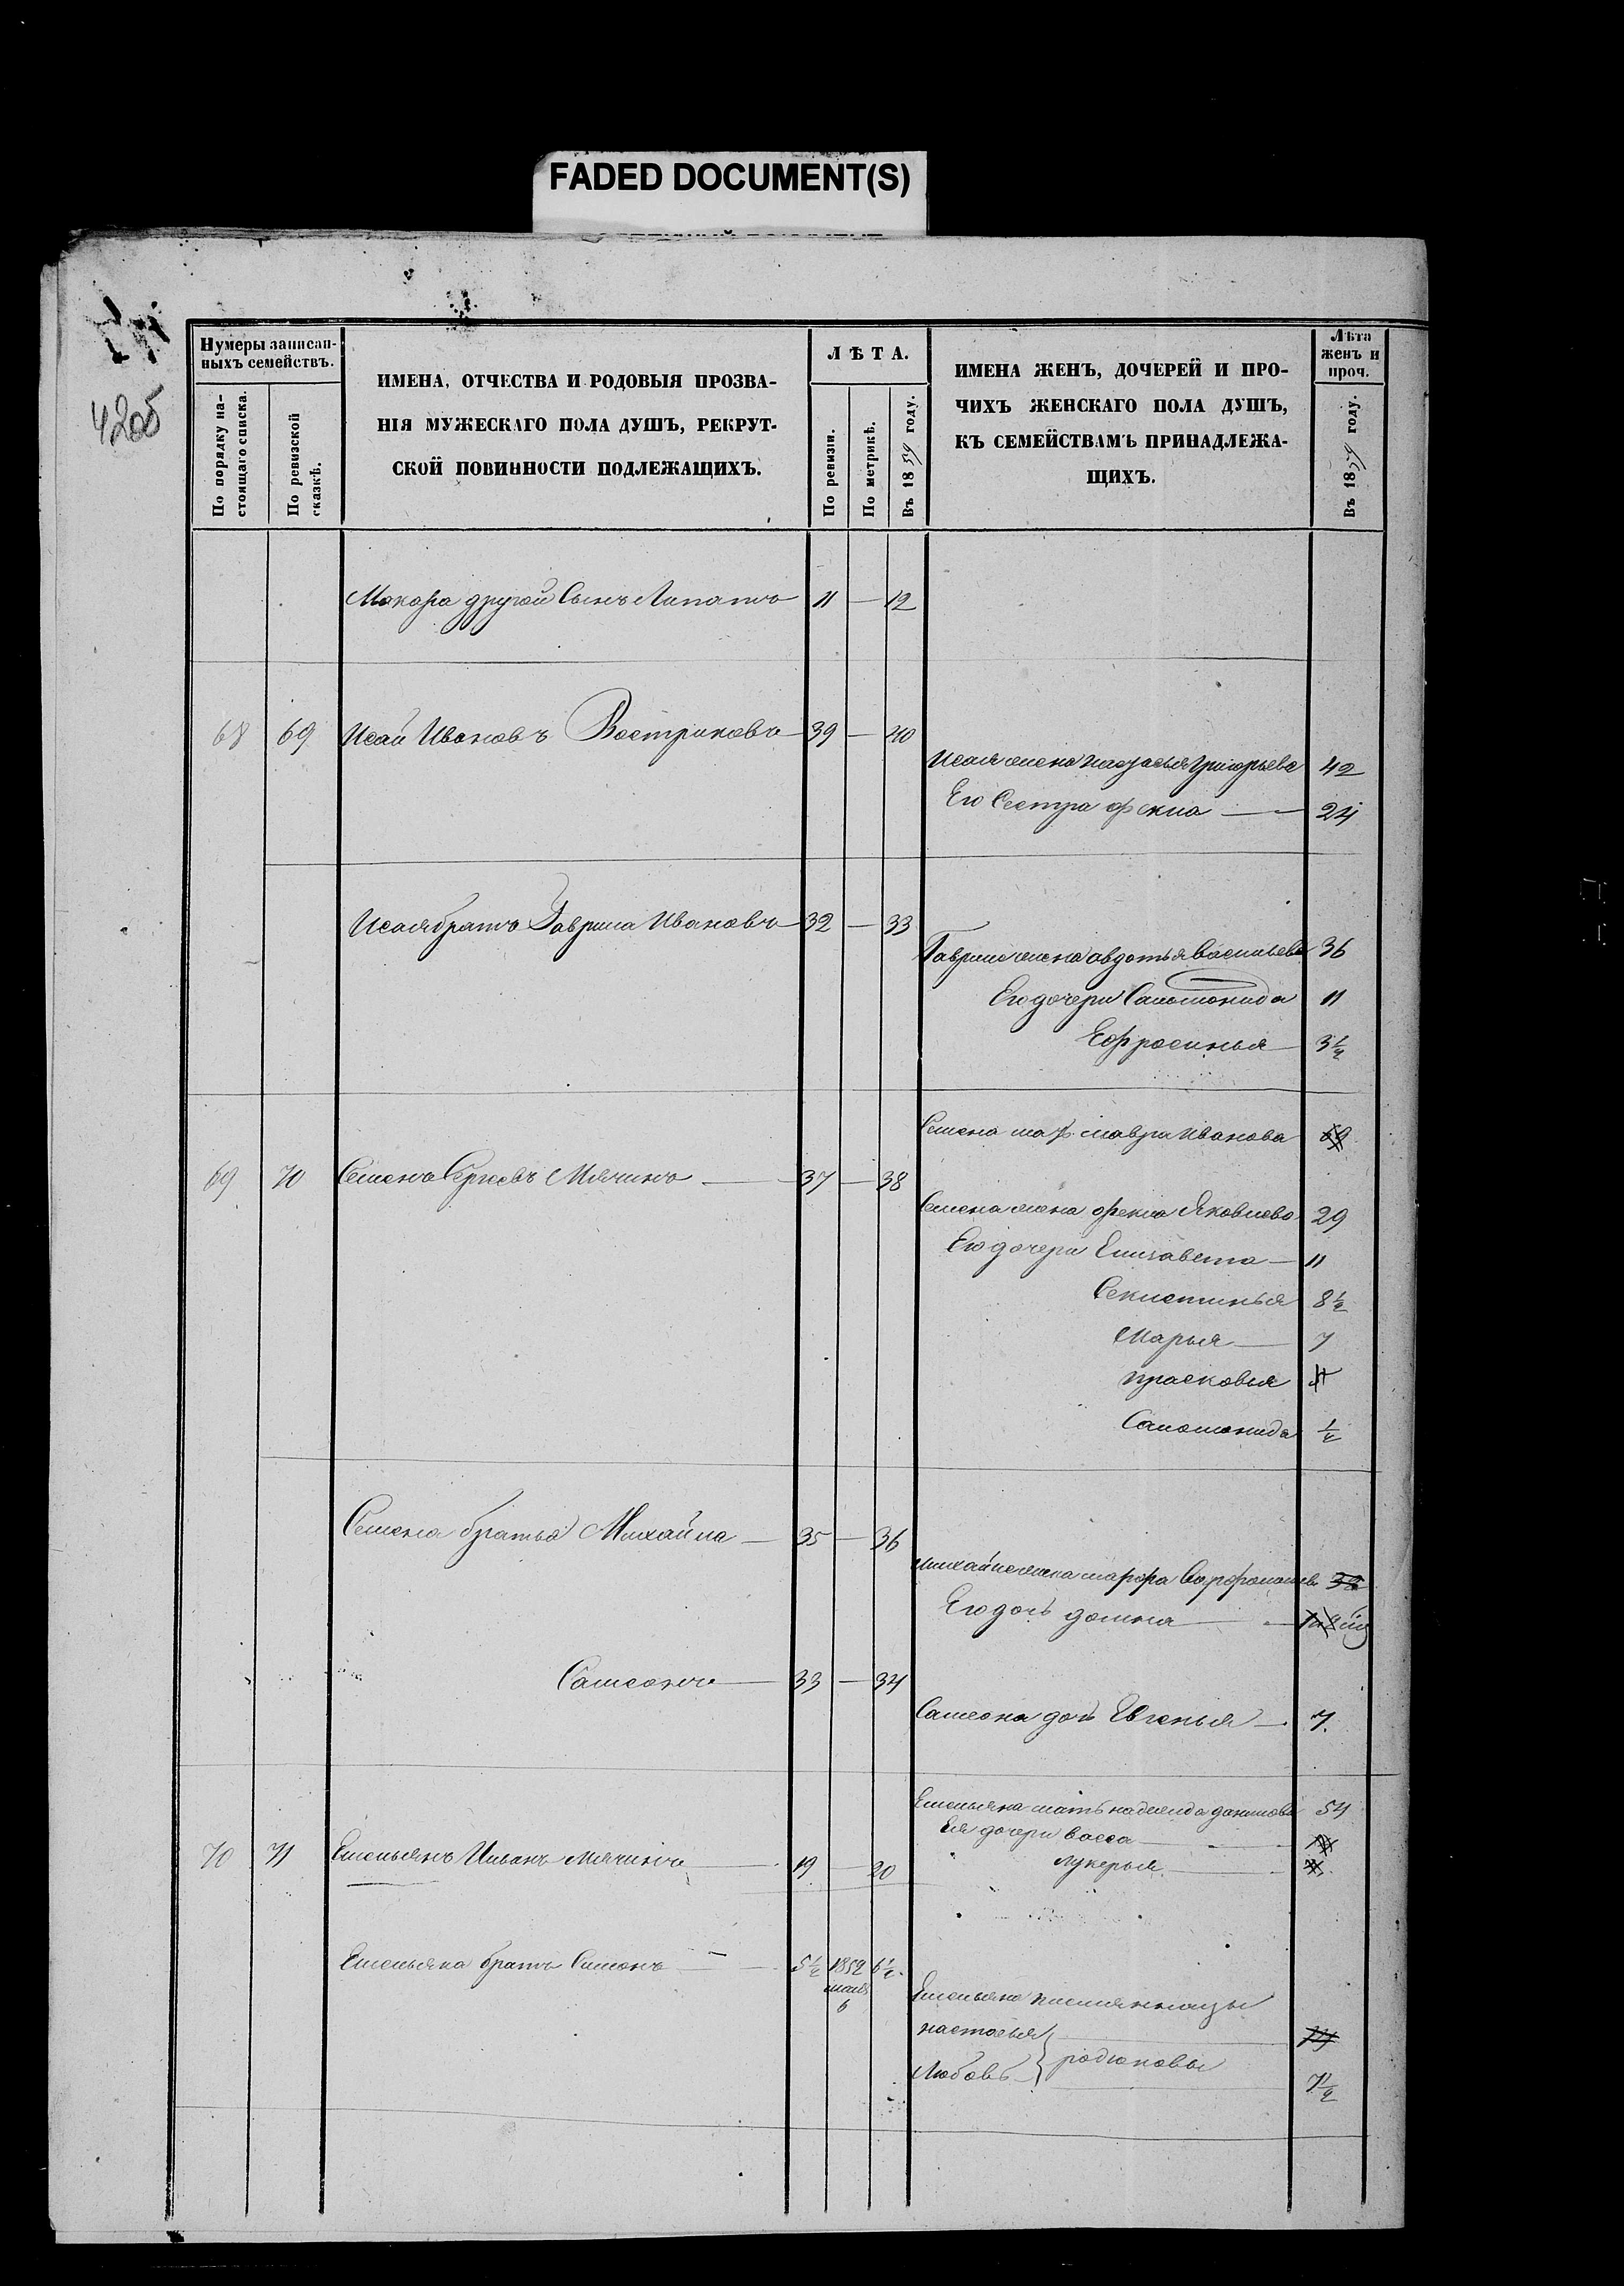 FADED DOCUMENT(S)
420б
Нумеры записан-
ныхъ семействъ.
По порядку на-
стоящаго списка.
По ревизской
сказкѣ.
ИМЕНА, ОТЧЕСТВА И РОДОВЫЯ ПРОЗВА-
НІЯ МУЖЕСКАГО ПОЛА ДУШЪ, РЕКРУТ-
СКОЙ ПОВИННОСТИ ПОДЛЕЖАЩИХЪ.
ЛѢТА.
По ревизіи.
По метрикѣ.
Въ 1859 году.
ИМЕНА ЖЕНЪ, ДОЧЕРЕЙ И ПРО-
ЧИХЪ ЖЕНСКАГО ПОЛА ДУШЪ,
КЪ СЕМЕЙСТВАМЪ ПРИНАДЛЕЖА-
ЩИХЪ.
Лѣта
женъ и
проч.
Въ 1859 году.
Макара другой Сынъ Липатъ 11 — 12
68 69 Исай Ивановъ Востриковъ 39 — 40
Исая жена Григорьева 42
Его Сестра фекла — 24
Исая братъ Гаврила Ивановъ 32 — 33
Гаврилы жена авдотья Васильева 36
Его дочери Саломонида 11
Ефросинья 3½
Семена мавра Иванова 69
69 70 Семенъ Сергѣевъ Мячинъ — 37 — 38
Семена жена фекла Яковлева 29
Его дочери Елизавета — 11
Секлетинья 8½
Марья — 7
прасковья
Саломонида ½
Семена братья Михайла — 35 — 36
Михайлы жена марфа
Его дочь домна
Самсонъ — 33 — 34
Самсона дочь Евгенья — 7.
Емельяна мать надежда данилова 54
Ея дочери васса
70 71 Емельянъ Ивановъ Мячинъ 19 — 20
лукерья
Емельяна братъ Симонъ — 5½ 1852 6½
6
Емельяна племянницы
настасья
Любовь } родионовы
7½